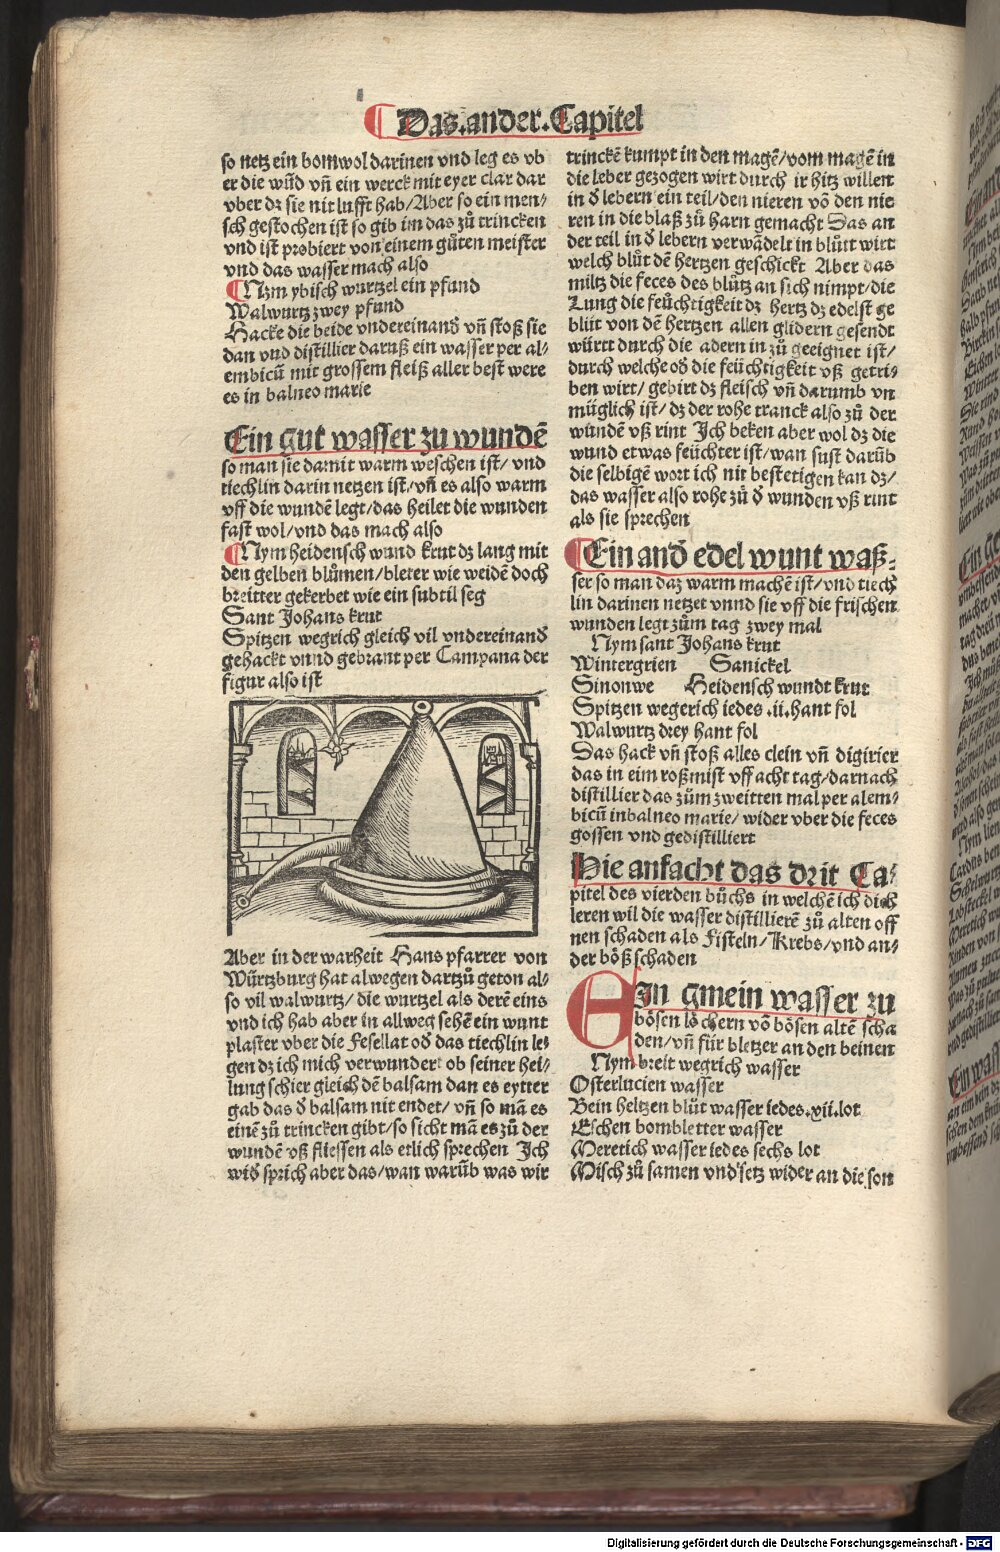 Das.ander.Capitel
so netz ein bomwol darinen vnd leg es vb
er die wūd vñ ein werck mit eyer clar dar
vber dz sie nit lufft hab/Aber so ein men⸗
sch gestochen ist so gib im das zů trincken
vnd ist probiert von einem gůten meister
vnd das wasser mach also
Nym ybisch wurtzel ein pfund
Walwurtz zwey pfund
Hacke die beide vndereinand̄ vñ stoß sie
dan vnd distillier daruß ein wasser per al⸗
embicū mit grossem fleiß aller best were
es in balneo marie
Ein gut wasser zu wundē
so man sie darnit warm weschen ist/ vnd
tiechlin darin netzen ist/vñ es also warm
vff die wundē legt/das heilet die wunden
fast wol/vnd das mach also
Nym heidensch wund krut dz lang mit
den gelben blůmen/bleter wie weidē doch
breitter gekerbet wie ein subtil seg
Sant Johans krut
Spitzen wegrich gleich vil vndereinand̄
gehackt vnnd gebrant per Campana der
figur also ist
Aber in der warheit Hans pfarrer von
Würtzburg hat alwegen dartzů geton al⸗
so vil walwurtz/ die wurtzel als derē eins
vnd ich hab aber in allweg sehē ein wunt
plaster vber die Fesellat od̄ das tiechlin le⸗
gen dz ich mich verwundert ob seiner hei⸗
lung schier gleich dē balsam dan es eytter
gab das d̄ balsam nit endet/ vñ so mā es
einē zů trincken gibt/so sicht mā es zů der
wundē vß fliessen als etlich sprechen Ich
wid̄ sprich aber das/wan warūb was wir
trinckē kumpt in den magē/vom magē in
die leber gezogen wirt durch ir hitz willen
in d̄ lebern ein teil/den nieren vō den nie
ren in die blaß zů harn gemacht Das an
der teil in d̄ lebern verwādelt in blůt wirt
welch blůt dē hertzen geschickt Aber das
miltz die feces des blůtz an sich nimpt/die
Lung die feüchtigkeit dz hertz dz edelst ge
blüt von dē hertzen allen glidern gesendt
württ durch die adern in zů geeignet ist/
durch welche od̄ die feüchtigkeit vß getri⸗
ben wirt/ gebirt dz fleisch vñ darumb vn
müglich ist/ dz der rohe tranck also zů der
wundē vß rint Ich beken aber wol dz die
wund etwas feüchter ist/wan sust darūb
die selbigē wort ich nit bestetigen kan dz/
das wasser also rohe zů d̄ wunden vß rint
als sie sprechen
Ein and̄ edel wunt waß⸗
ser so man daz warm machē ist/vnd tiech
lin darinen netzet vnnd sie vff die frischen
wunden legt zům tag zwey mal
Nym sant Johans krut
Wintergrien Sanickel
Sinonwe Heidensch wundt krut
Spitzen wegerich iedes .ii. hant fol
Walwurtz drey hant fol
Das hack vñ stoß alles clein vñ digirier
das in eim roßmist vff acht tag/darnach
distillier das zům zweitten mal per alem⸗
bicū inbalneo marie/ wider vber die feces
gossen vnd gedistilliert
Hie anfacht das drit Ca⸗
pitel des vierden bůchs in welchē ich dich
leren wil die wasser distillierē zů alten off
nen schaden als Fisteln/Krebs/vnd an⸗
der böß schaden
EIn gmein wasser zu
bösen löchern vō bösen altē scha
den/vñ für bletzer an den beinen
Nym breit wegrich wasser
Osterlucien wasser
Bein heltzen blüt wasser iedes.xii.lot
Eschen bombletter wasser
Meretich wasser iedes sechs lot
Misch zů samen vnd setz wider an die son
Digitalisierung gefördert durch die Deutsche Forschungsgemeinschaft - DFG